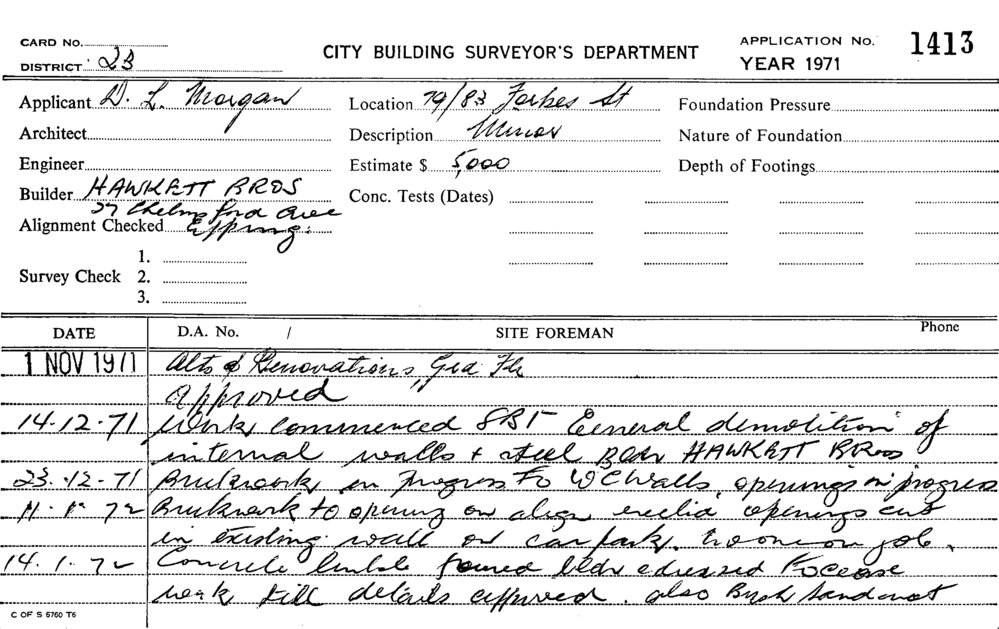 CARD No.
DISTRICT 23
CITY BUILDING SURVEYOR'S DEPARTMENT
APPLICATION No. 1413
YEAR 1971
Applicant D. L. Morgan
Location 79/83 Forbes St
Foundation Pressure
Architect
Description Minor
Nature of Foundation
Engineer
Estimate $ 5,000
Depth of Footings
Builder HAWKETT BROS
Conc. Tests (Dates)
27 Chelmsford Ave
Alignment Checked Epping.
1.
Survey Check 2.
3.
DATE D.A. No. / SITE FOREMAN Phone
1 NOV 1971 Alts & Renovations, Grd Flr
Approved
14.12.71 Work commenced General demolition of
internal walls & steel Bldr HAWKETT BROS
23.12.71 Brickwork in progress to WC walls, openings in progress
11.1.72 Brickwork to opening on align erected openings cut
in existing wall on car park. No one on job.
14.1.72 Concrete lintels poured bldr advised to cease
work till details approved. also Bush Sand not
C OF S 6760 T6